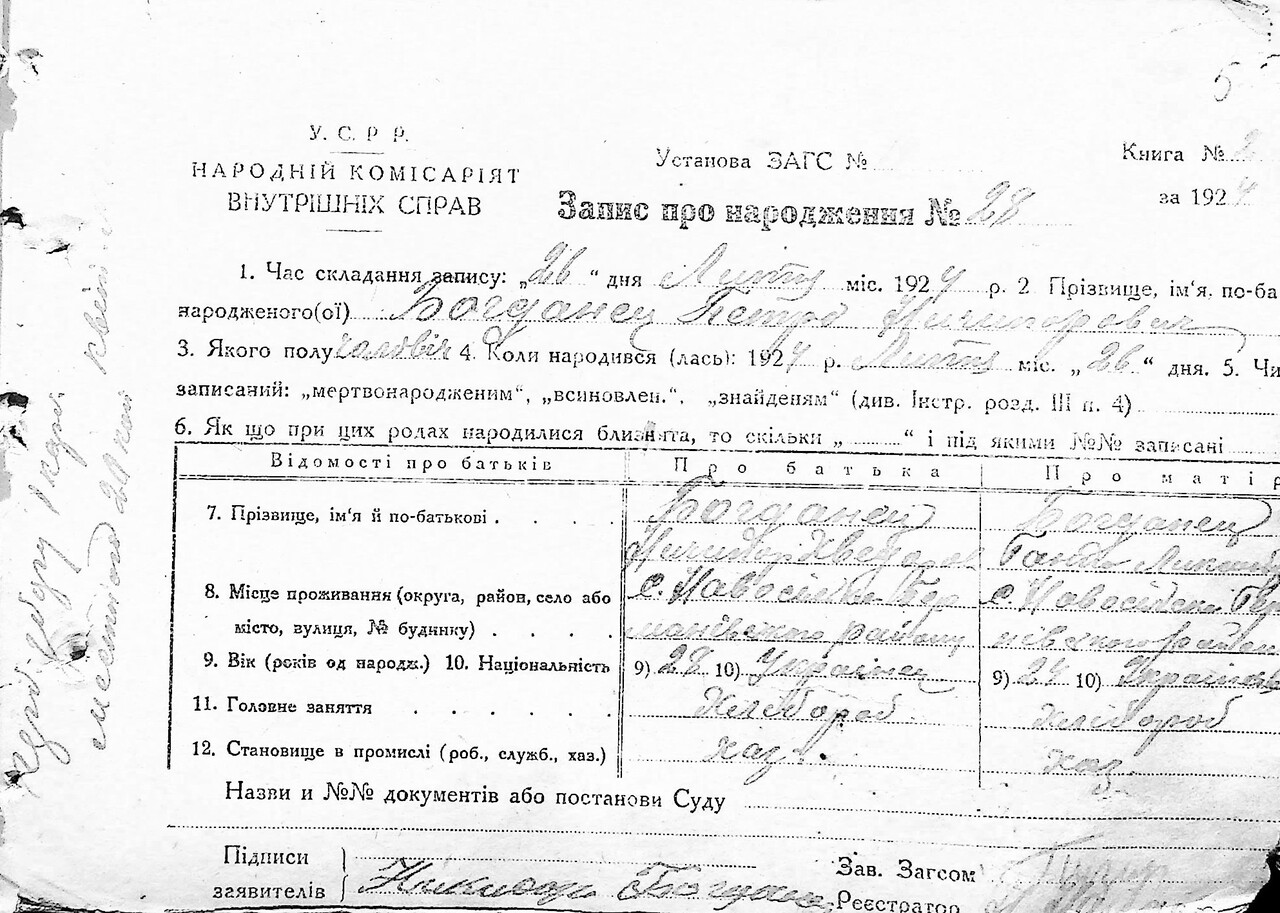 5
У. С. Р Р.
НАРОДНІЙ КОМІСАРІЯТ
ВНУТРІШНІХ СПРАВ
Установа ЗАГС №
Книга № 2
за 1924
Запис про народження № 28
1. Час складання запису: „26 “ дня Лют міс. 1924 р. 2 Прізвище, ім'я, по-ба
народженого(ої) Богданец Петро Ничипорович
3. Якого полу чоловіч 4. Коли народився (лась): 1924 р. Лют міс. „ 26 “ дня. 5. Чи
записаний: „мертвонародженим“, „всиновлен.“, „знайденям“ (див. Інстр. розд. III п. 4)
6. Як що при цих родах народилися близнята, то скільки „ “ і під якими №№ записані
Відомості про батьків Про батька Про матір
7. Прізвище, ім'я й по-батькові Богданец Богданец
Ганна
8. Місце проживання (округа, район, село або с. Новосілки с. Новосілки
місто, вулиця, № будинку) району
9. Вік (років од народж.) 10. Національність 9) 28 10) Українец 9) 24 10) Українка
11. Головне заняття Хлібороб Хлібороб
12. Становище в промислі (роб., служб., хаз.) хаз. хаз.
Назви и №№ документів або постанови Суду
Підписи
заявителів
Зав. Загсом
Реєстратор